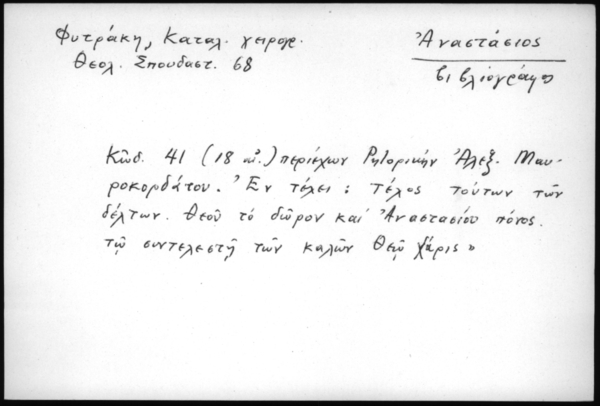 Φυτράκη, Καταλ. χειρογρ.
Θεολ. Σπουδαστ. 68
Ἀναστάσιος
βιβλιογράφος
Κῶδ. 41 (18 αἰ.) περιέχων Ρητορικήν Ἀλεξ. Μαυ-
ροκορδάτου. Ἐν τέλει: τέλος τούτων τῶν
δέλτων. Θεοῦ τό δῶρον καί Ἀναστασίου πόνος.
τῷ συντελεστῇ τῶν καλῶν Θεῷ χάρις»